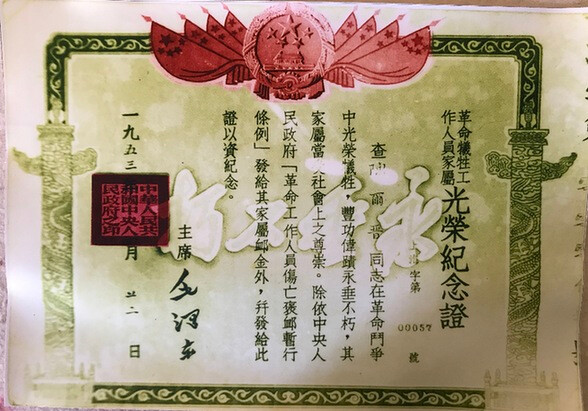 革命犧牲工
作人員家屬
光榮紀念證
字第
00057
號
查 爾 同志在革命鬥爭
中光榮犧牲,豐功偉蹟永垂不朽,其
家屬當受社會上之尊崇。除依中央人
民政府「革命工作人員傷亡褒卹暫行
條例」發給其家屬卹金外,幷發給此
證以資紀念。
主席 毛澤東
一九五三 月 廿二日
中華人民共
和國中央人
民政府之印
永垂不朽